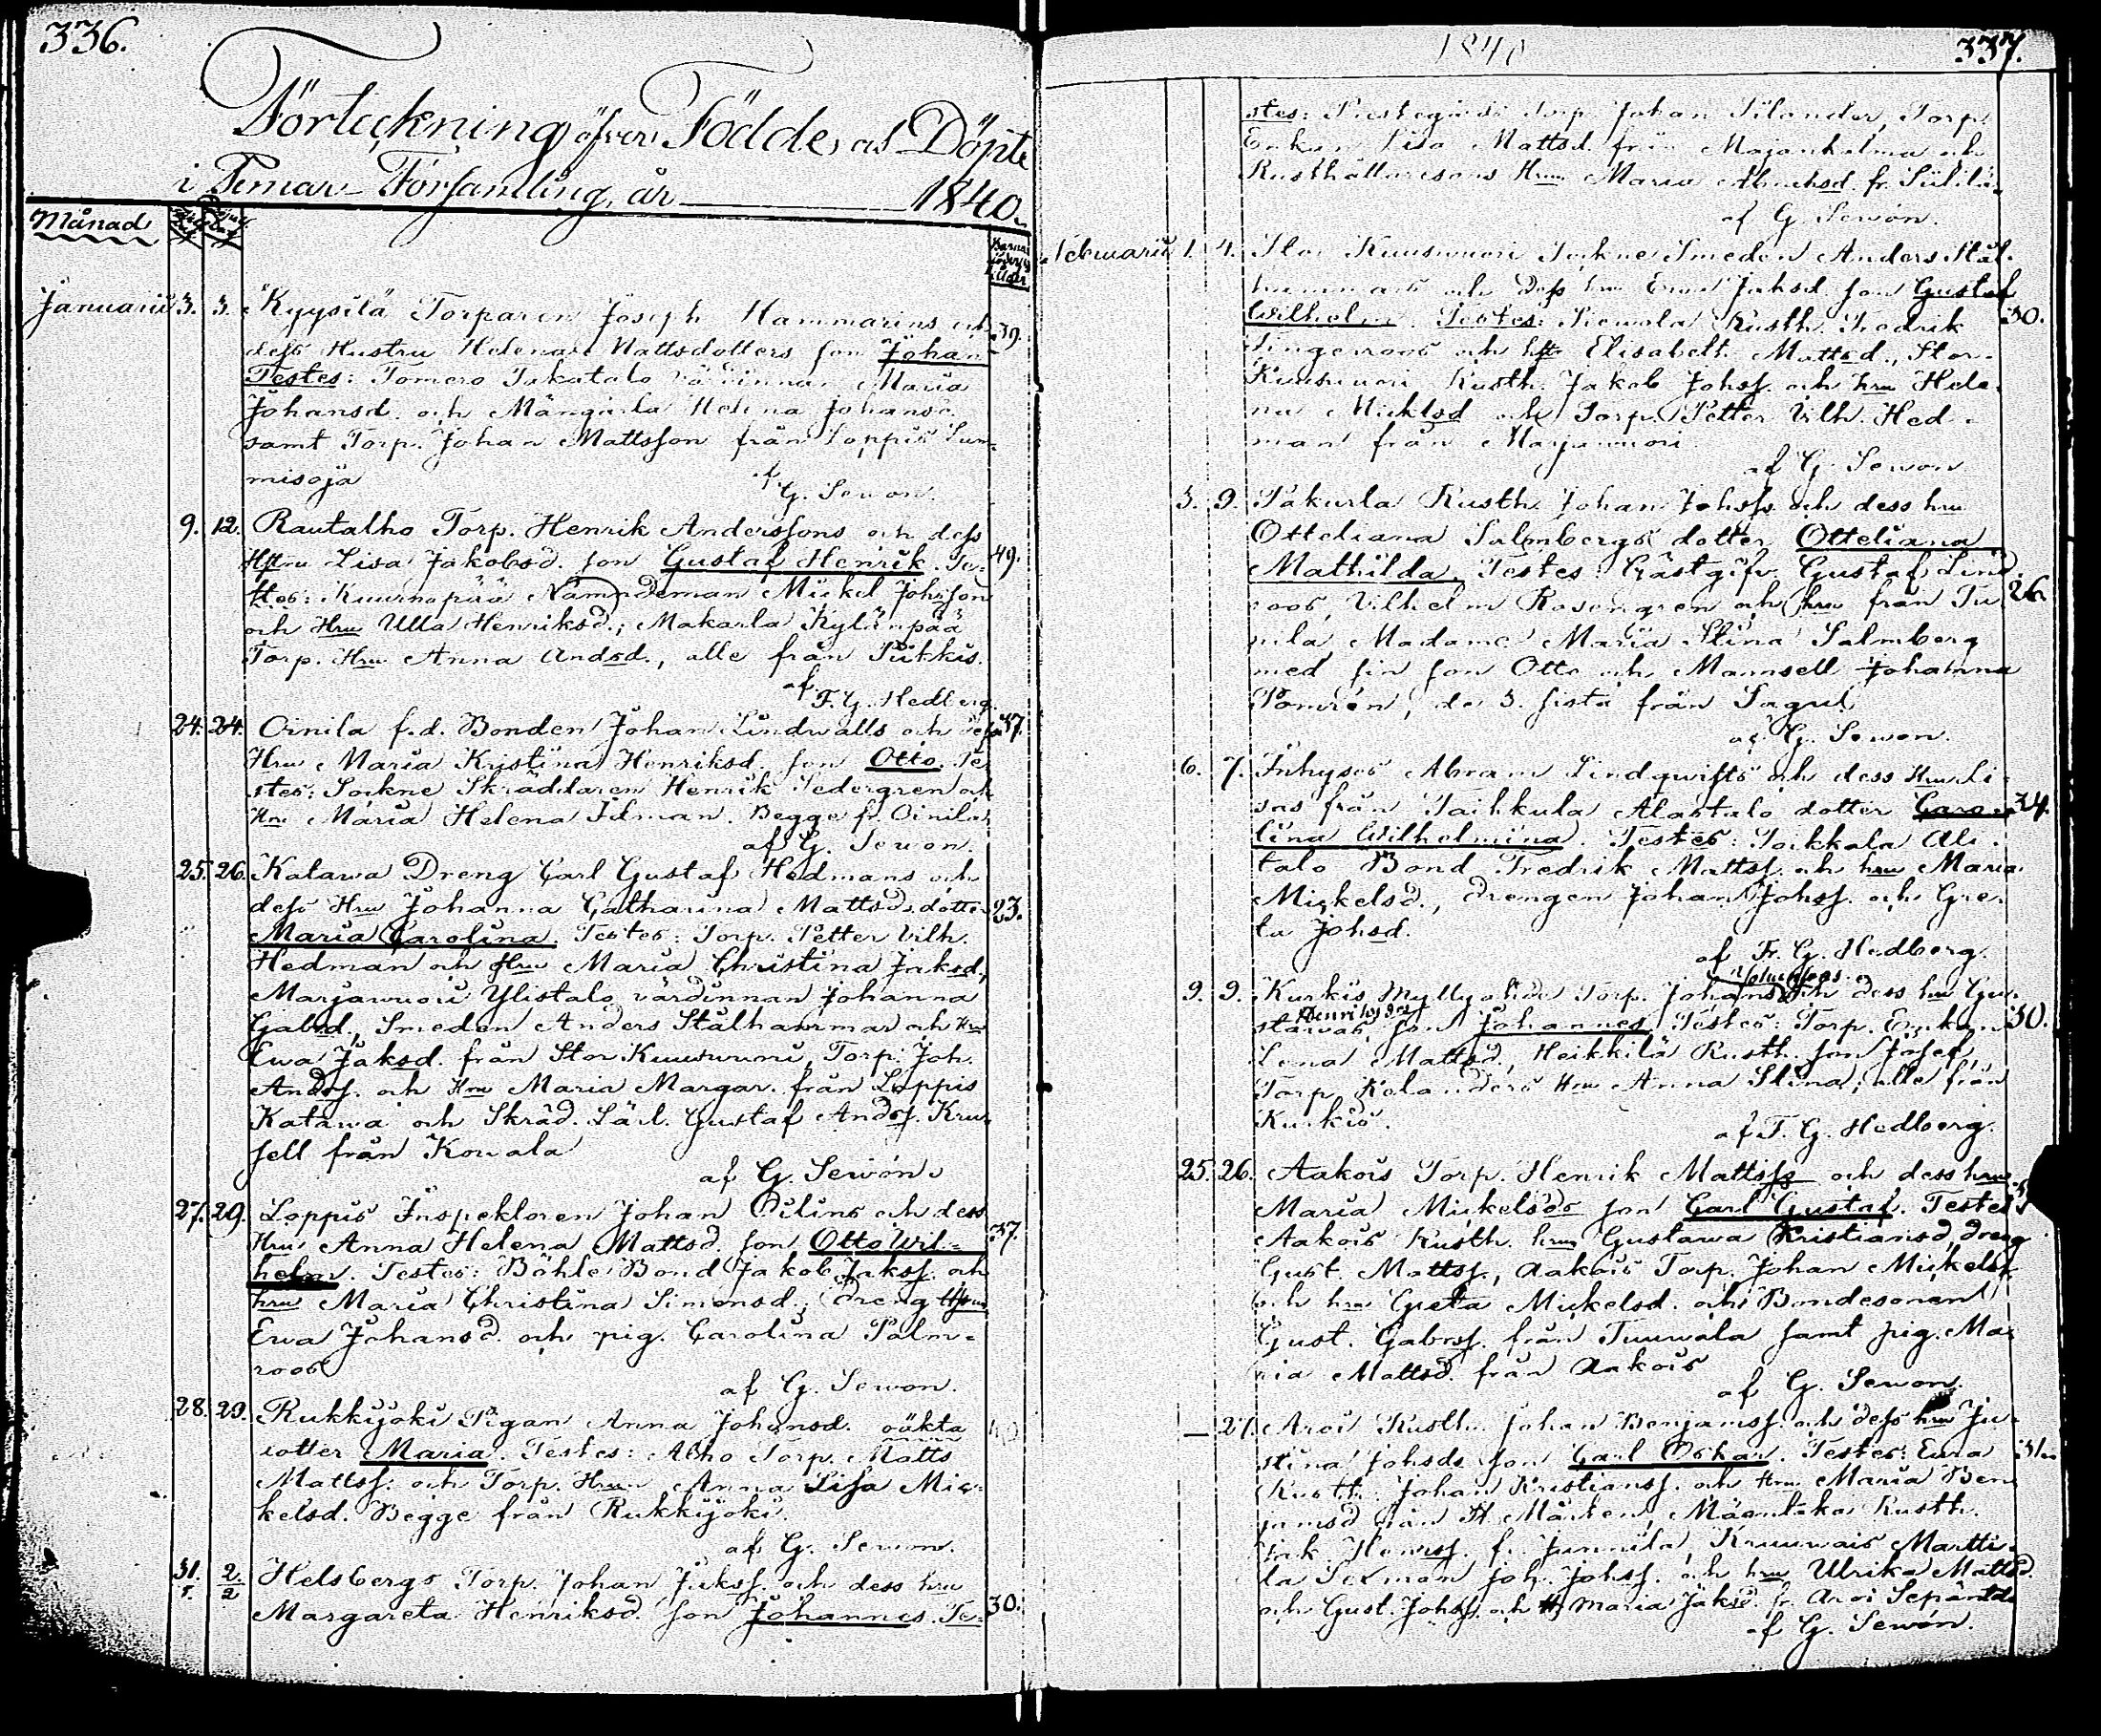 336.
Förteckning öfver Födde, och Döpte
i Pemar Församling, år 1840.
Månad
Barna föderskans ålder
Januarii 3. 3. Kyysilä Torparen Joseph Hammarins och 39.
dess Hustru Helena Mattsdotters son Johan
Testes: Tomero Takatalo värdinnan Maria
Johansd. och Mångarla Helena Johansd.
samt Torp. Johan Mattsson från Loppis Lum-
misoja
af G. Sewon.
9. 12. Rautalho Torp. Henrik Anderssons och dess
Hstru Lisa Jakobsd. son Gustaf Henrik. Te- 49.
stes: Kuurnapää Nämndeman Mickel Johsson
och Hru Ulla Henriksd.; Makarla Kylänpää
Torp. Hru Anna Andsd., alle från Piikkis.
af F. G. Hedberg.
24. 24. Oinila f.d. Bonden Johan Lindwalls och dess 37.
Hru Maria Kristina Henriksd. son Otto. Te-
stes: Sockne Skräddaren Henrik Sedergren och
Hru Maria Helena Idman. Begge fr. Oinila
af G. Sewon.
25. 26. Katawa Dreng Carl Gustaf Hedmans och
dess Hru Johanna Catharina Mattsds dotter 23.
Maria Carolina. Testes: Torp. Petter Vilh.
Hedman och Hru Maria Christina Jaksd.,
Marjawuori Ylistalo värdinnan Johanna
Gabrd., Smeden Anders Stålhammar och Hru
Ewa Jaksd. från Stor Kuuswuori, Torp. Joh.
Andrs. och Hru Maria Margar. från Loppis
Katawa och Skräd. Lärl. Gustaf Andrs. Kru-
sell från Kowala
af G. Sewon.
27. 29. Loppis Inspektoren Johan Oilins och dess
Hru Anna Helena Mattsd. son Otto Wil- 37.
helm. Testes: Böhle Bond Jakob Jakss. och
hru Maria Christina Simonsd., Dreng Hru
Ewa Johansd. och pig. Carolina Palm-
roos
af G. Sewon.
28. 29. Rukkijoki Pigan Anna Johansd. oäkta
dotter Maria. Testes: Alho Torp. Matts
Mattss. och Torp. Hru Anna Lisa Mic-
kelsd. Begge från Rukkijoki.
af G. Sewon.
31/1. 2/2 Helsbergs Torp. Johan Jakss. och dess hru
Margareta Henriksd. son Johannes. Te- 30.
1840 337.
stes: Prestegårds Torp. Johan Silander, Torp.
Enkan Lisa Mattsd. från Majanhalma och
Rusthållaresons Hru Maria
af G. Sewon.
Februarii 1. 4. Stor Kuuswuori Sockne Smeden Anders Stål-
hammars och dess hru Ewa Jaksd. son Gustaf
Wilhelm. Testes: Siewola Rusth. Fredrik 30.
Tingeroos och hstr Elisabeth Mattsd., Stor
Kuuswuori Rusth. Jakob Johss. och hru Hele-
na Micklsd och Torp. Petter Vilh. Hed-
man från Marjawuori
af G. Sewon
5. 9. Pakurla Rusth. Johan Johss. och dess hru
Otteliana Salmbergs dotter Otteliana
Mathilda. Testes: Gästgifv. Gustaf Lind- 26.
roos, Vilhelm Rosengren och hru från Tu-
rila, Madame Maria Stina Salmberg
med sin son Otto och Mamsell Johanna
Pomrén, de 3. sista från Sagu
af G. Sewon.
6. 7. Inhyses Abram Lindqwists och dess Hru Li-
sas från Taihkula Alastalo dotter Caro- 34.
lina Wilhelmina. Testes: Toikkala Ali-
talo Bond Fredrik Mattss. och hru Maria
Mickelsd., drengen Johan Johss. och Gre-
ta Johsd.
af Fr. G. Hedberg.
9. 9. Kurkis Myllyahde Torp. Johans och dess hru Gu-
stavas Henriksder son Johannes. Testes: Torp. Enkan 30.
Lena Mattsd., Heikkilä Rusth. son Josef,
Torp. Rolanders Hru Anna Stina, alle från
Kurkis.
af F. G. Hedberg.
25. 26. Aakois Torp. Henrik Mattss. och dess hru
Maria Mickelsds son Carl Gustaf. Testes
Aakois Rusth. hru Gustawa Kristiansd, dreng
Gust. Mattss., Aakois Torp. Johan Mickelss.
och hru Greta Mickelsd. och Bondesonen
Gust. Gabrss. från Tuuwala samt pig. Ma-
ria Mattsd. från Aakois
af G. Sewon.
— 27. Aroi Rusth. Johan Benjamss. och dess hru Ju-
stina Johsds son Carl Oskar. Testes: Eura 31.
Rusth. Johan Kristianss. och Hru Maria Ben-
jamsd från St Mårten, Rusth.
Jak. Henrss. fr. Junnila, Kruuwais Martti-
la Sexman Joh. Johss. och hru Ulrika Mattsd.
och Gust. Johss. och H. Maria Jaksd. fr. Aroi Sepäntalo
af G. Sewon.